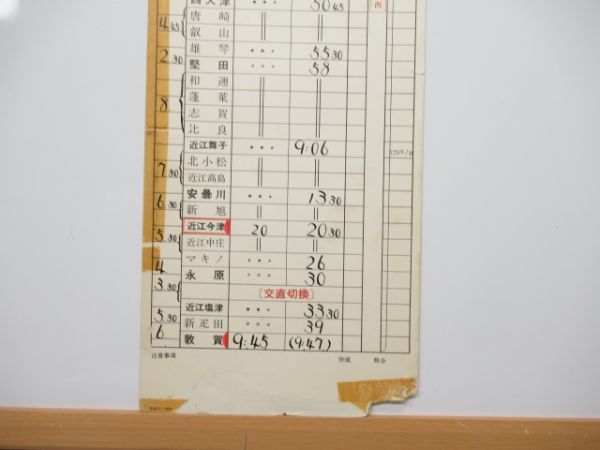 西大津 ••• 50 45
4.45 唐崎 || ||
叡山 || ||
雄琴 ••• 55 30
2.30 堅田 ••• 58
和邇 || ||
蓬萊 || ||
8 志賀 || ||
比良 || ||
近江舞子 ••• 9:06
北小松 || ||
7.30 近江高島 || ||
安曇川 ••• 13 30
6.30 新旭 || ||
近江今津 20 20 30
5.30 近江中庄 || ||
マキノ ••• 26
4 永原 ••• 30
3.30 〔交直切換〕
近江塩津 ••• 33 30
5.30 新疋田 ••• 39
6. 敦賀 9:45 (9:47)
注意事項 作成 照合